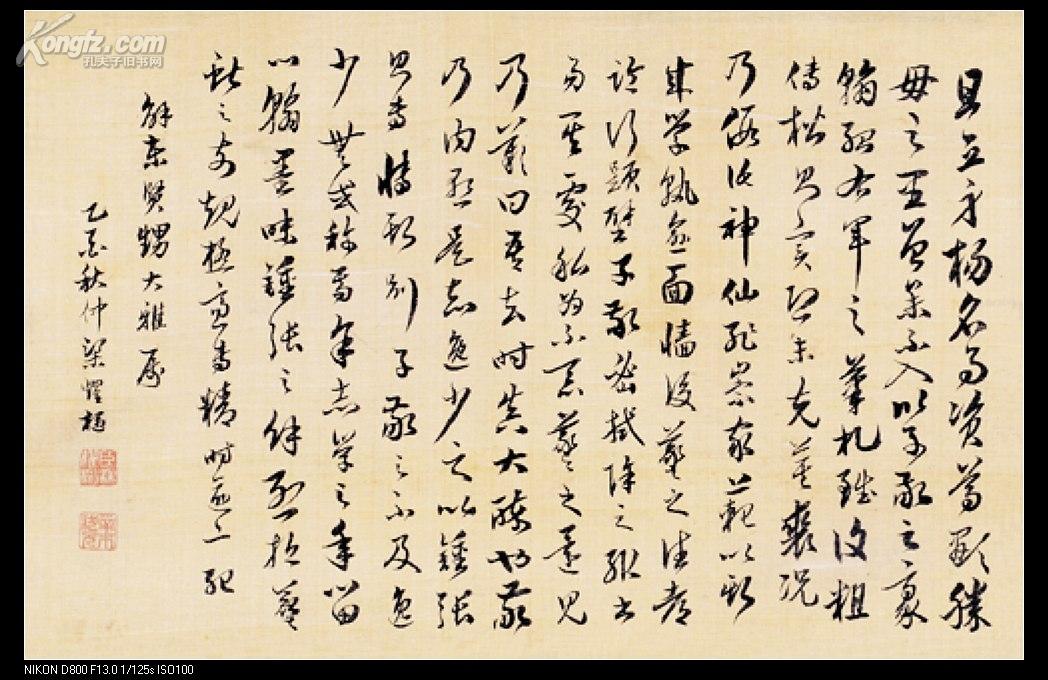 且立身揚名事資尊顯勝
母之里曾參不入以子敬之豪
翰紹右軍之筆札雖復粗
傳楷則實恐未克箕裘況
乃假託神仙恥崇家範以斯
成學孰愈面牆後羲之往都
臨行題壁子敬密拭除之輒書
易其處私為不惡羲之還見
乃歎曰吾去時真大醉也敬
乃內慙是知逸少之比鍾張
則專博斯別子敬之不及逸
少無或疑焉余志學之年留
心翰墨味鍾張之餘烈挹羲
獻之前規極慮專精時逾二紀
賢甥大雅屬
乙酉秋仲梁耀樞
Kongfz.com
孔夫子旧书网
NIKON D800 F13.0 1/125s ISO100